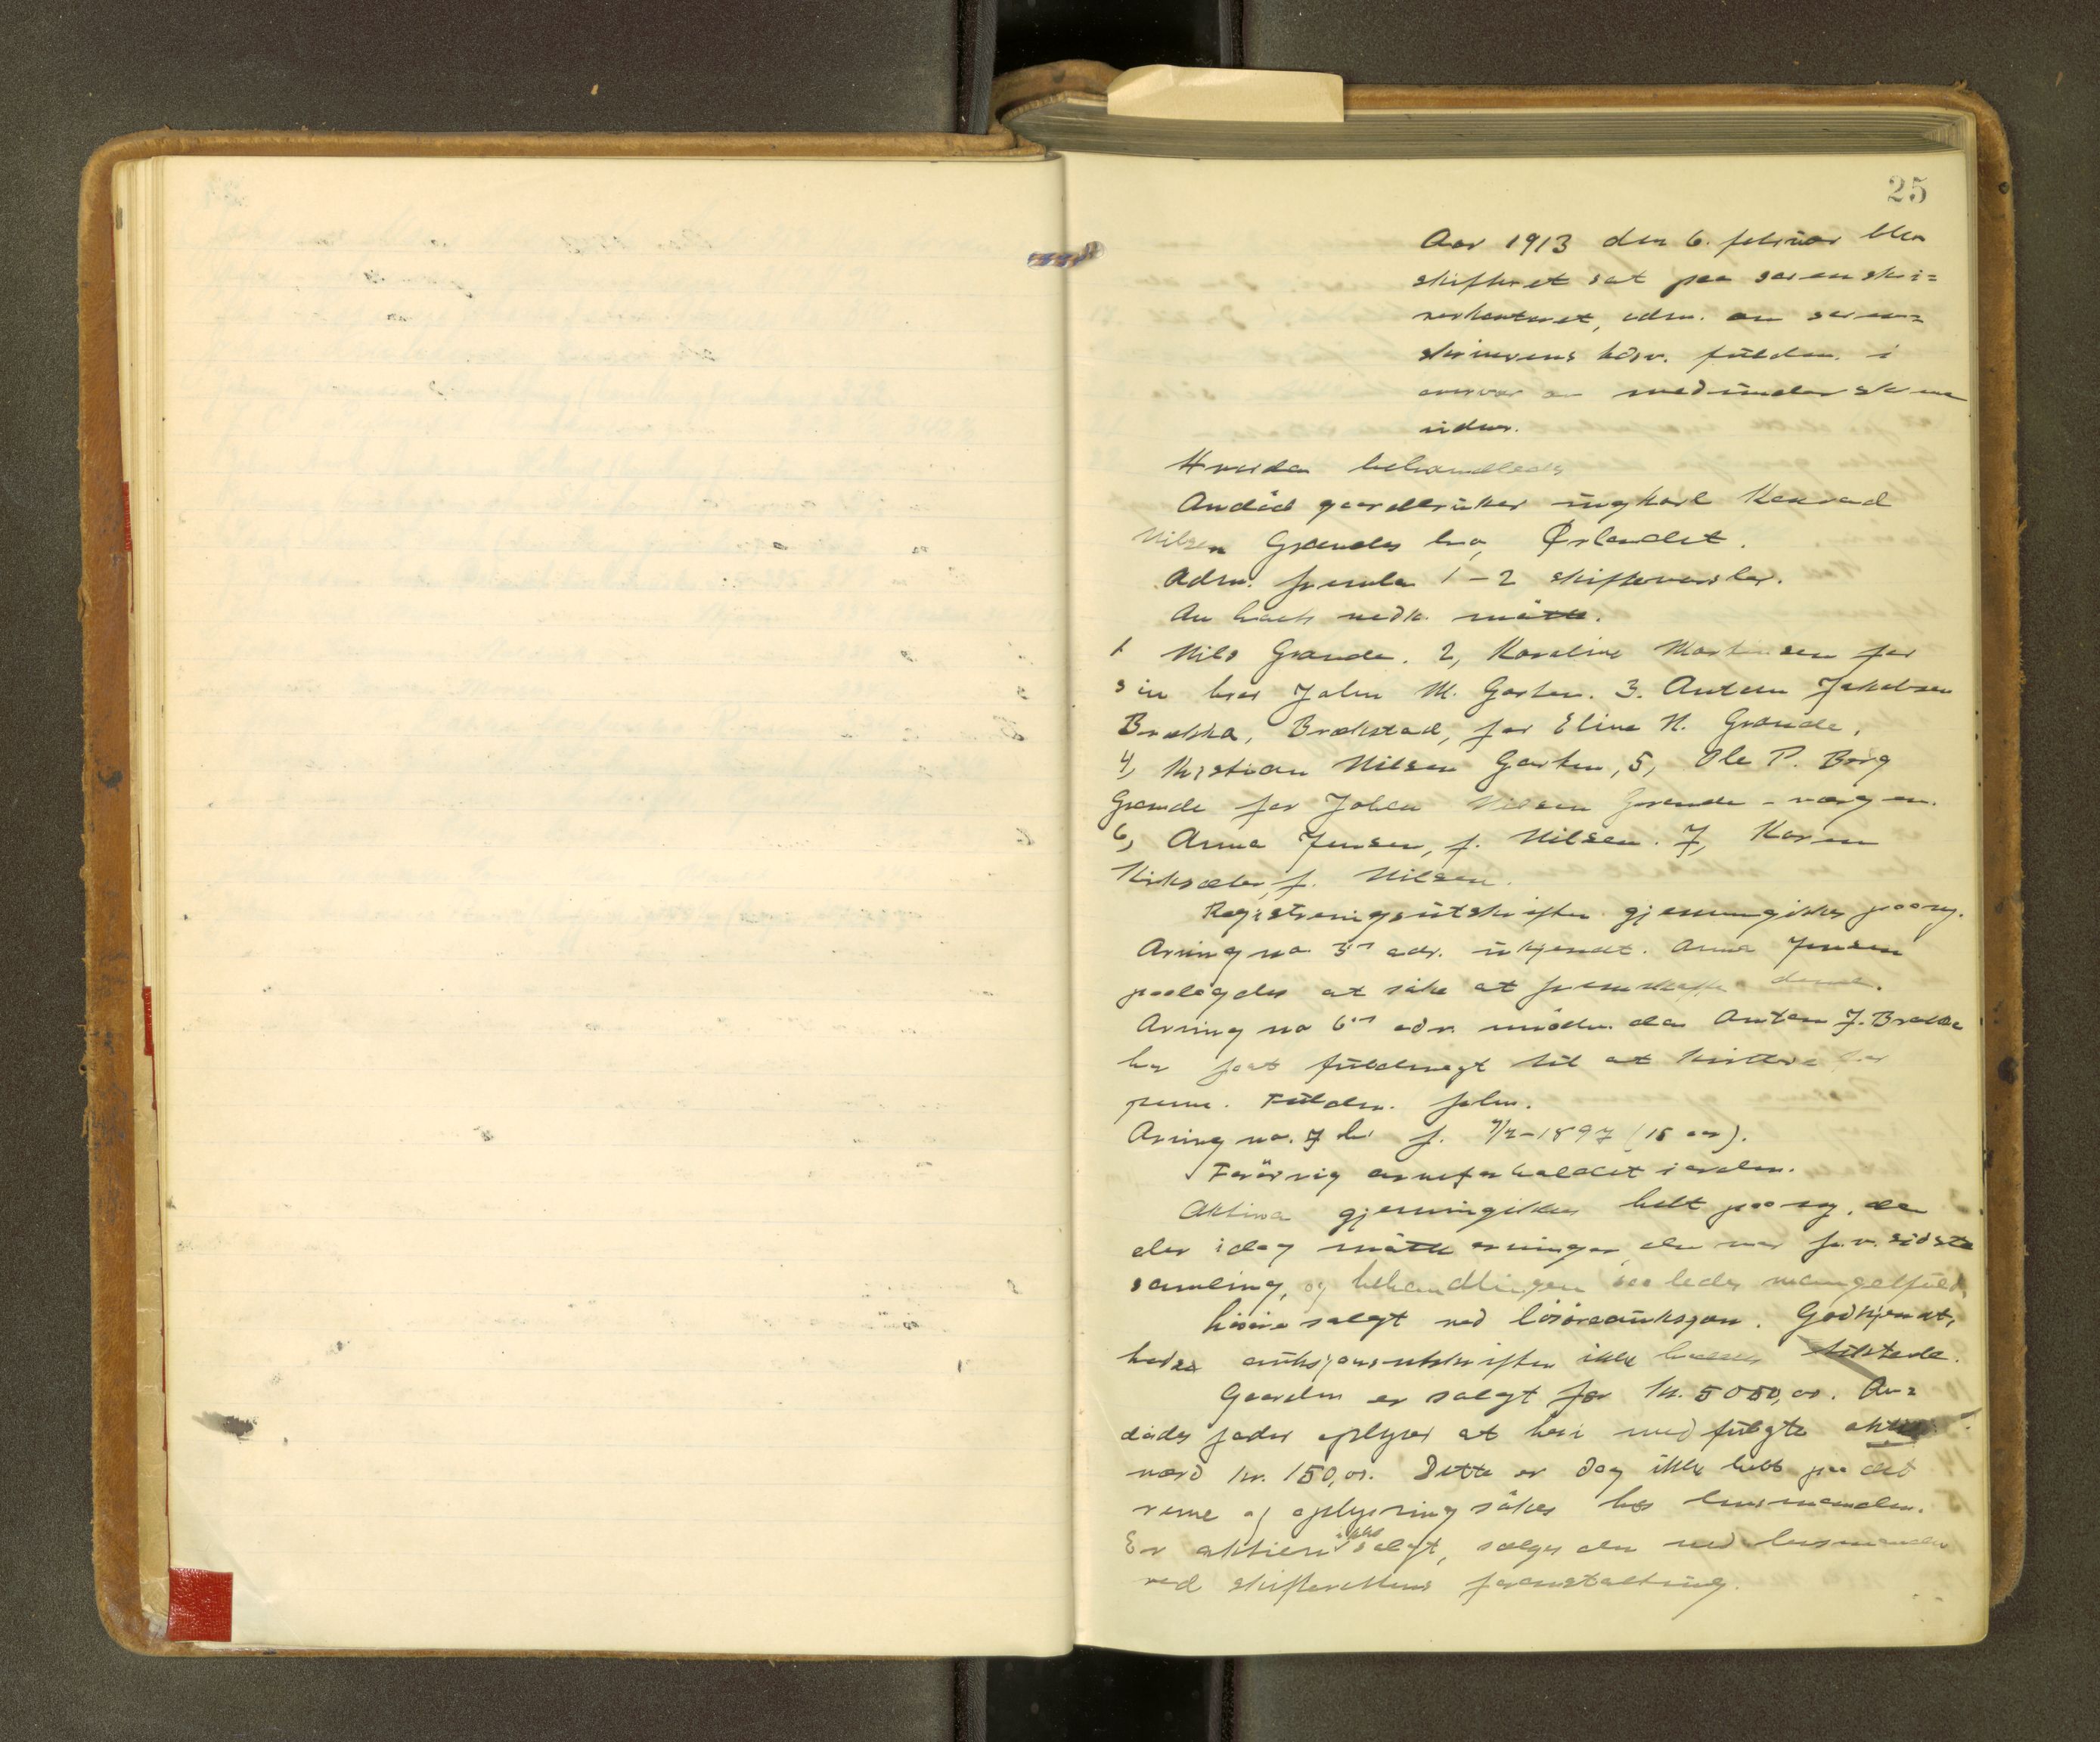 25
Aar 1913 den 6. februar blev
skifteret sat paa sorenskri=
verkontoret, adm. av soren=
skriverens edsv. fuldm. i
overvær av medunderskrevne
vidner.
Hvorda behandledes
Avdöd gaardbruker ungkarl Konrad
Nilsen Grandes bo, Ørlandet.
Adm. fremla 1-2 skiftevarsler.
Av boets vedk. mötte.
1 Nils Grande. 2, Karoline Martinsen for
sin bror John M. Garten. 3. Anton Jakobsen
Brækka, Brækstad, for Eline N. Grande,
4, Kristian Nilsen Garten, 5, Ole P. Borg
Grande for Johan Nilsen Grande - værgen.
6, Anna Jensen, f. Nilsen. 7, Karen
Kirksæter, f. Nilsen.
Registreringsutskriften gjennemgikkes paany.
Arving no 3s adr. ukjendt. Anna Jensen
paalagdes at söke at fremskaffe denne.
Arving no 6s adr. unödv. da Anton J. Brækka
har faat fuldmagt til at kvittere for
penne. Fuldm. folm.
Arving no. 7 er f. 7/2-1897 (15 aar).
Forövrig arveforholdet i orden.
Aktiva gjennemgikkes helt paany, da
der idag mötte arvinger, der var fr.v. sidste
samling, og behandlingen saaledes mangelfuld.
Lösöre solgt ved lösöreauksjon. Godkjendt,
auksjonsutskriften ikke tilstede.
Gaarden er solgt for kr. 5050,00. Av=
dödes fader oplyser at heri medfulgte aktie
værd kr. 150,00. Dette er dog ikke helt paa det
rene og oplysning sökes hos lensmanden.
Er aktien ikke solgt, sælges den ved lensmanden
ved skifterettens foranstaltning.